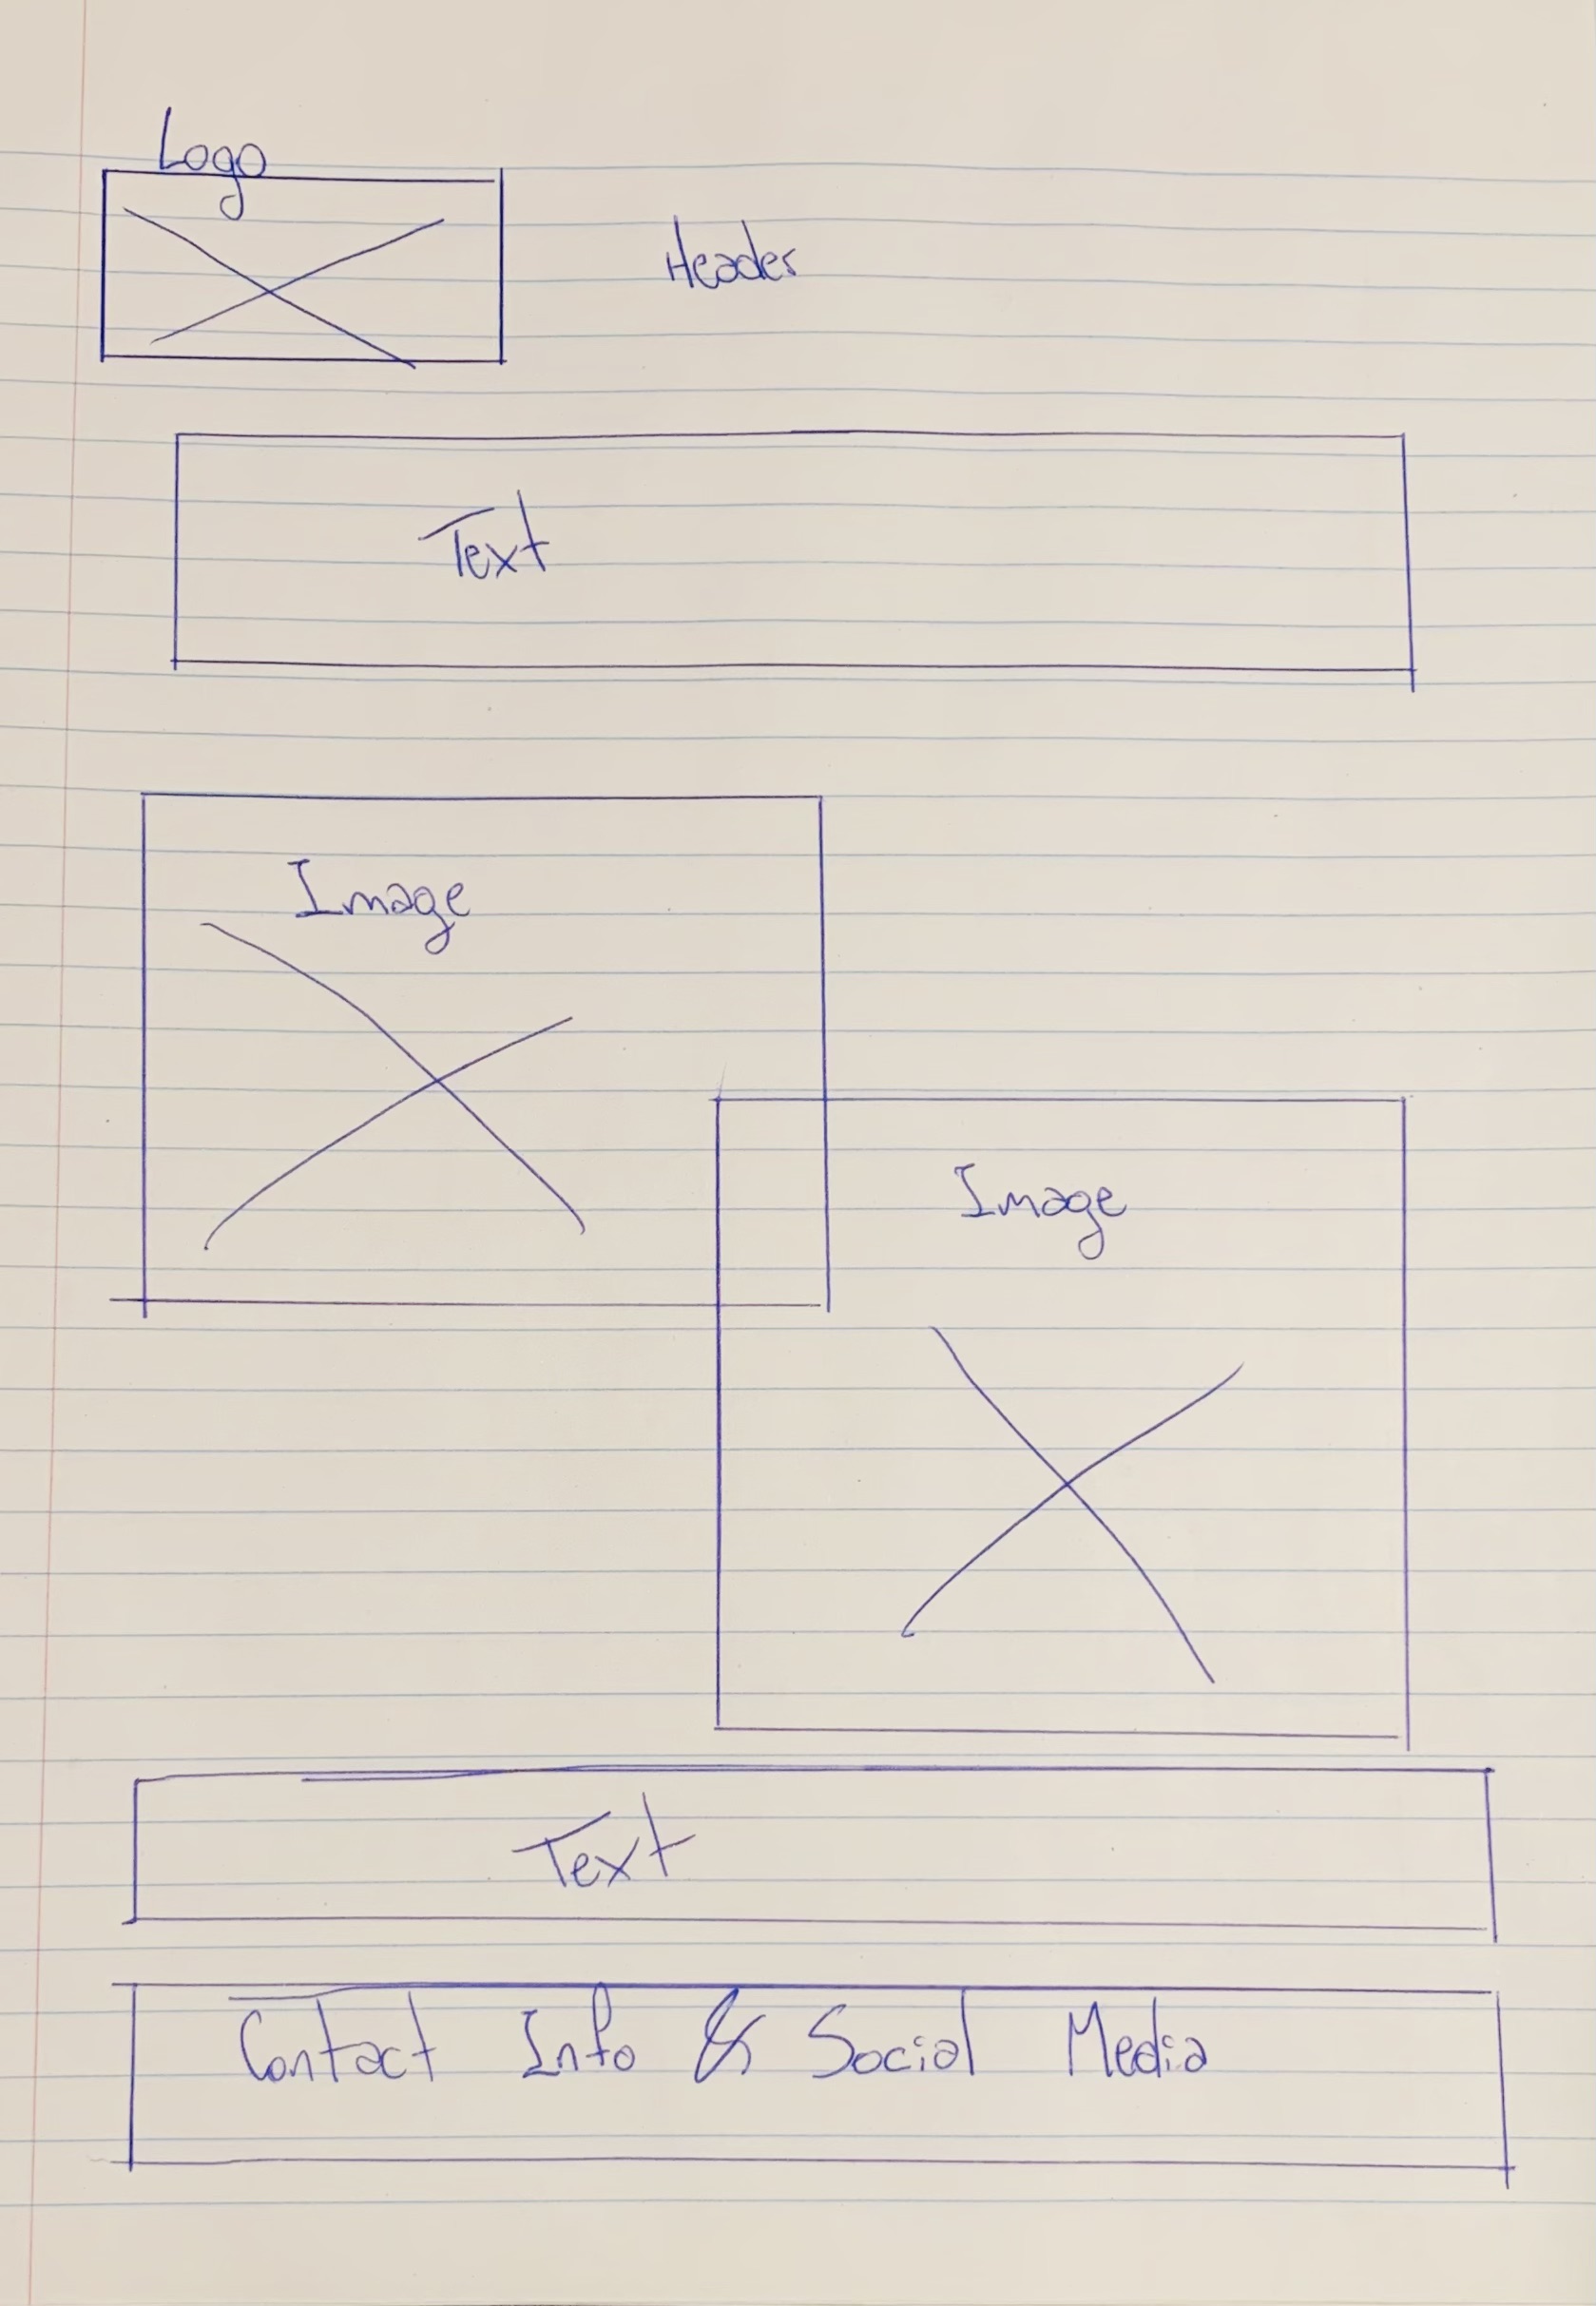 Logo
Header
Text
Image
Image
Text
Contact Info & Social Media